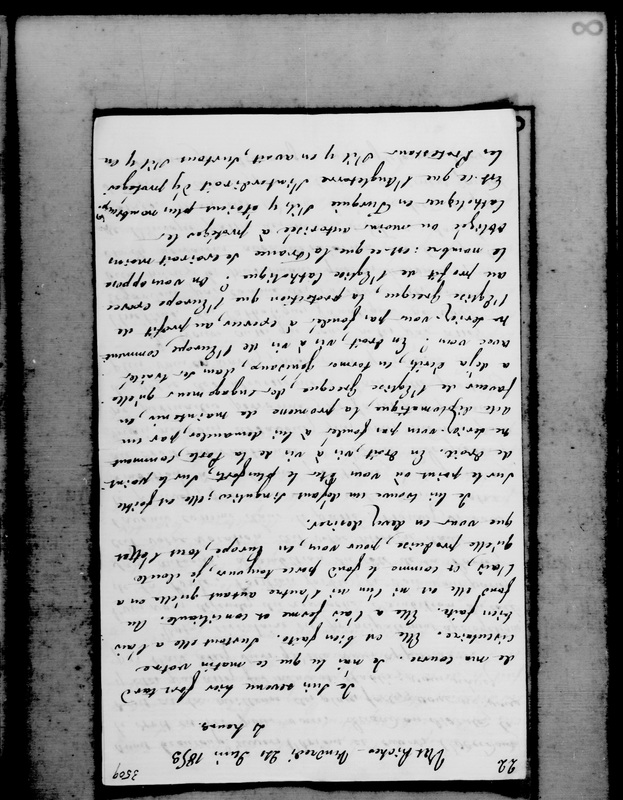 22
3509
Val Richer - Vendredi 24 Juin 1853
2 heures
Je suis revenu hier fort tard
de ma course. Je n'ai lu que ce matin votre
circulaire. Elle est bien faite. Surtout elle a l'air
bien faite. Elle a l'air ferme et conciliante. Au
fond elle est ni l'un ni l'autre autant qu'elle en a
l'air, et comme le fond perce toujours, je doute
qu'elle produise, pour vous, en Europe, tout l'effet
que vous en devez desirer.
Je lui trouve un defaut singulier; elle est faible
sur le point où vous êtes le plus forts, sur le point
de droit. En droit, vis à vis de la Porte, comment
ne seriez-vous pas fondés à lui demander, par un
acte diplomatique, la promesse de maintenir, en
faveur de l'Eglise grecque, des engagemens qu'elle
a déjà écrits, en termes généraux, dans des traités
avec vous ? En droit, vis à vis de l'Europe, comment
ne seriez-vous pas fondés à exercer, au profit de
l'Eglise grecque, la protection que l'Europe exerce
au profit de l'Eglise catholique ? On vous oppose
le nombre : est-ce que la France se croirait moins
obligée ou moins autorisée à protéger les
Catholiques en Turquie s'ils y étaient plus nombreux ?
Est-ce que l'Angleterre s'interdiroit d'y protéger
les Protestans s'il y en avait, surtout s'il y en